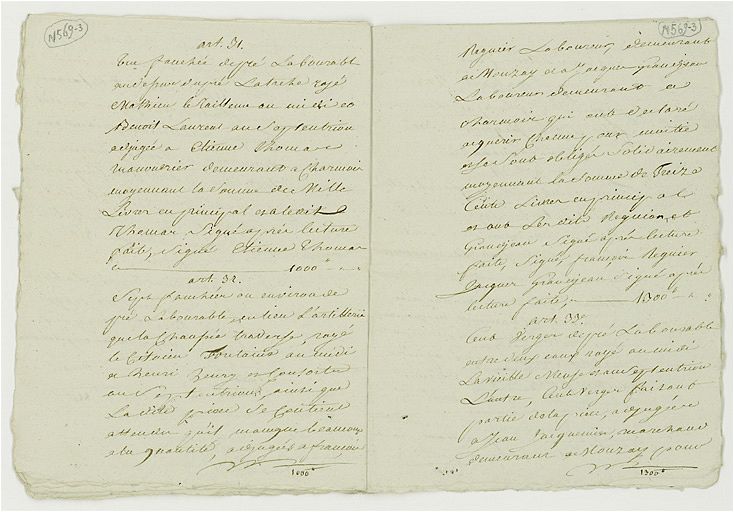 N569-3
art. 31.
une fauchée de pré Labourable
Mathieu le Railleur au midi et
Benoit Laurent au Septentrion
adjugée a Etienne Thomas
manouvrier demeurant a Charmois
moyennant la Somme de Mille
Livres en principal et a ledit
Thomas Signé après lecture
faite, Signé Etienne Thomas
1000
art. 32.
Sept fauchées ou environ de
pré Labourable, en lieu L'artillerie
que la Chaussée traverse, royé
le Citoyen Fontaine au midi
et henri henry et Consorts
au Septentrion, ainsi que
La dite pièce Se Contient
attendu qu'il manque beaucoup
a la quantité, adjugés a francois
1000
N569-3
Requier Laboureur demeurant
a Mouzay et a Jacques Grandjean
Laboureur demeurant a
Charmois qui ont declaré
acquerir Chacun par moitié
et se Sont obligés Solidairement
moyennant la Somme de Treize
Cents Livres en principal
et ont Lesdits Requier et
Grandjean Signé après lecture
faite, Signés francois Requier
Jacques Grandjean Signé après
lecture faite. 1300
art. 33.
Cent Verges de pré Labourable
entre deux eaux royé au midi
La vieille Meuse et au Septentrion
L'autre, Cent Verges faisant
partie de la pièce, adjugée
a Jean Jacquemin, marchand
demeurant a Mouzay pour
1300